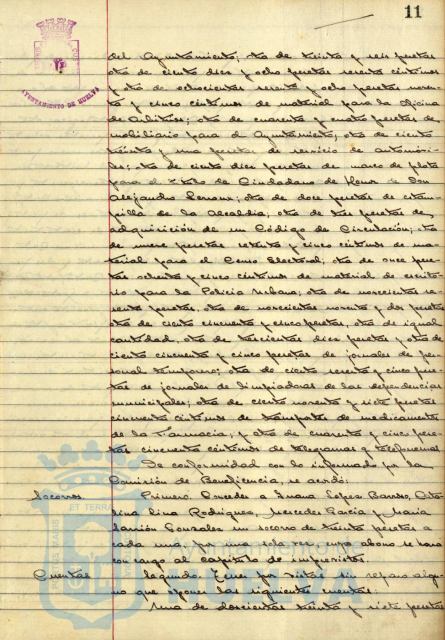 11
AYUNTAMIENTO DE HUELVA
del Ayuntamiento; otra de treinta y seis pesetas
otra de ciento diez y ocho pesetas sesenta céntimos
y otra de ochocientas sesenta y ocho pesetas noven-
ta y cinco céntimos de material para la Oficina
de Arbitrios; otra de cuarenta y cuatro pesetas de
mobiliario para el Ayuntamiento; otra de ciento
treinta y una pesetas de servicio de automóvi-
les; otra de ciento diez pesetas de marco de plata
para el título de Ciudadano de Honor de Don
Alejandro Lerroux; otra de doce pesetas de estam-
pilla de la Alcaldía; otra de tres pesetas de
adquisición de un Código de Circulación; otra
de nueve pesetas setenta y cinco céntimos de ma-
terial para el Censo Electoral; otra de once pese-
tas ochenta y cinco céntimos de material de escrito-
rio para la Policía Urbana; otra de novecientas se-
senta pesetas, otra de novecientas noventa y dos pesetas
otra de ciento cincuenta y cinco pesetas, otra de igual
cantidad, otra de trescientas diez pesetas y otra de
ciento cincuenta y cinco pesetas de jornales de per-
sonal temporero; otra de ciento setenta y cinco pese-
tas de jornales de limpiadoras de las dependencias
municipales; otra de ciento noventa y siete pesetas
cincuenta céntimos de transportes de medicamentos
de la Farmacia; y otra de cuarenta y cinco pese-
tas cincuenta céntimos de telegramas y telefonemas
De conformidad con lo informado por la
Comisión de Beneficencia, se acordó:
Socorros Primero. Conceder a Juana López Barroso,
Lino Rodríguez, Mercedes García y María
González un socorro de treinta pesetas a
cada una, por una sola vez, cuyo abono se hará
con cargo al capítulo de imprevistos.
Cuentas Segundo. Tener por vistas sin reparo algu-
no que oponer las siguientes cuentas:
Una de doscientas treinta y siete pesetas